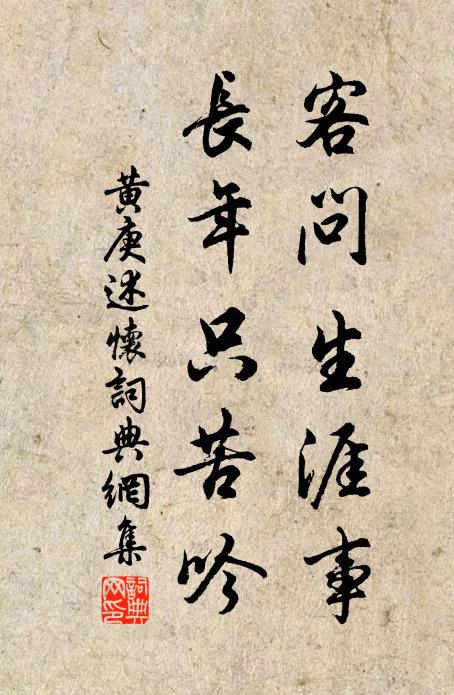 客問生涯事
長年只苦吟
黃庚述懷詞典網集
詞典網印